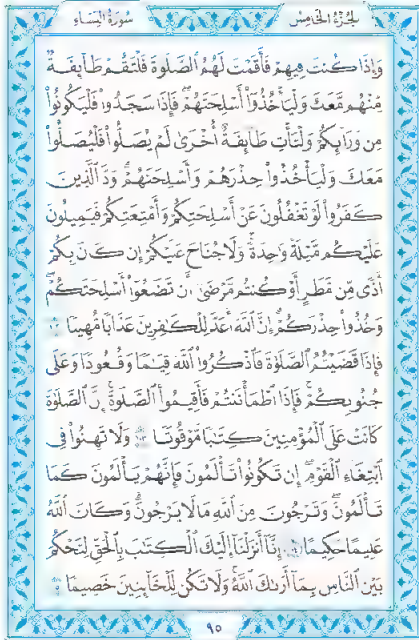 الجزء الخامس
سورة النساء
وَإِذَا كُنتَ فِيهِمْ فَأَقَمْتَ لَهُمُ ٱلصَّلَوٰةَ فَلْتَقُمْ طَآئِفَةٌ
مِّنْهُم مَّعَكَ وَلْيَأْخُذُوٓا۟ أَسْلِحَتَهُمْ فَإِذَا سَجَدُوا۟ فَلْيَكُونُوا۟
مِن وَرَآئِكُمْ وَلْتَأْتِ طَآئِفَةٌ أُخْرَىٰ لَمْ يُصَلُّوا۟ فَلْيُصَلُّوا۟
مَعَكَ وَلْيَأْخُذُوا۟ حِذْرَهُمْ وَأَسْلِحَتَهُمْ ۗ وَدَّ ٱلَّذِينَ
كَفَرُوا۟ لَوْ تَغْفُلُونَ عَنْ أَسْلِحَتِكُمْ وَأَمْتِعَتِكُمْ فَيَمِيلُونَ
عَلَيْكُم مَّيْلَةً وَٰحِدَةً ۚ وَلَا جُنَاحَ عَلَيْكُمْ إِن كَانَ بِكُمْ
أَذًى مِّن مَّطَرٍ أَوْ كُنتُم مَّرْضَىٰٓ أَن تَضَعُوٓا۟ أَسْلِحَتَكُمْ ۖ
وَخُذُوا۟ حِذْرَكُمْ ۗ إِنَّ ٱللَّهَ أَعَدَّ لِلْكَٰفِرِينَ عَذَابًا مُّهِينًا ١٠٢
فَإِذَا قَضَيْتُمُ ٱلصَّلَوٰةَ فَٱذْكُرُوا۟ ٱللَّهَ قِيَٰمًا وَقُعُودًا وَعَلَىٰ
جُنُوبِكُمْ ۚ فَإِذَا ٱطْمَأْنَنتُمْ فَأَقِيمُوا۟ ٱلصَّلَوٰةَ ۚ إِنَّ ٱلصَّلَوٰةَ
كَانَتْ عَلَى ٱلْمُؤْمِنِينَ كِتَٰبًا مَّوْقُوتًا ١٠٣ وَلَا تَهِنُوا۟ فِى
ٱبْتِغَآءِ ٱلْقَوْمِ ۖ إِن تَكُونُوا۟ تَأْلَمُونَ فَإِنَّهُمْ يَأْلَمُونَ كَمَا
تَأْلَمُونَ ۖ وَتَرْجُونَ مِنَ ٱللَّهِ مَا لَا يَرْجُونَ ۗ وَكَانَ ٱللَّهُ
عَلِيمًا حَكِيمًا ١٠٤ إِنَّآ أَنزَلْنَآ إِلَيْكَ ٱلْكِتَٰبَ بِٱلْحَقِّ لِتَحْكُمَ
بَيْنَ ٱلنَّاسِ بِمَآ أَرَىٰكَ ٱللَّهُ ۚ وَلَا تَكُن لِّلْخَآئِنِينَ خَصِيمًا ١٠٥
٩٥